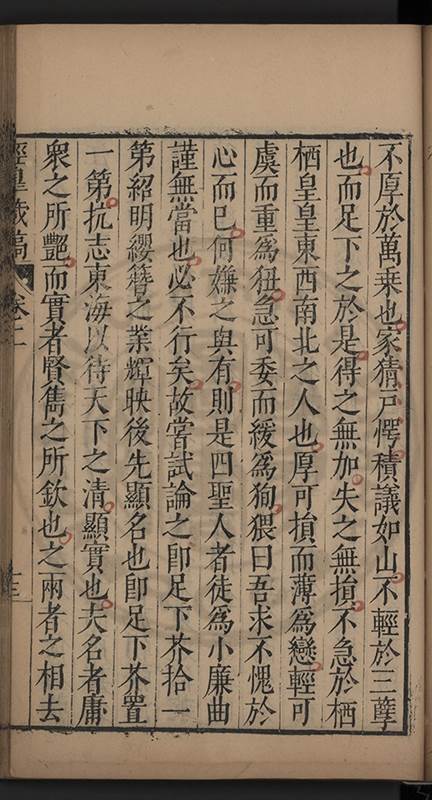 不厚於萬乘也家猜戶愕積議如山不輕於三孽
也而足下之於是得之無加失之無損不急於栖
栖皇皇東西南北之人也厚可損而薄為戀輕可
虞而重為狃急可委而緩為狥猥曰吾求不愧於
心而已何嫌之與有則是四聖人者徒為小廉曲
謹無當也必不行矣故嘗試論之卽足下芥拾一
第紹明纓簪之業輝映後先顯名也卽足下芥置
一第抗志東海以待天下之清顯實也夫名者庸
衆之所豔而實者賢雋之所欽也之兩者之相去
涇臯藏稿 卷二 十三